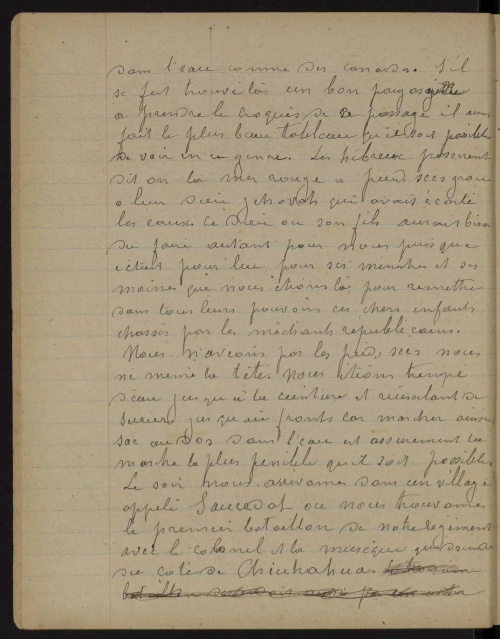 dans l'eau comme des canards. S'il
se fut trouvé là un bon paysagiste
a prendre le croquis de ce passage il aurait
fait le plus beau tableau qu'il soit possible
de voir en ce genre. Les hébreux passèrent
dit on la mer rouge a pieds secs grace
a leur Dieu jehovah qui avait écarté
les eaux. Ce Dieu ou son fils aurait bien
du faire autant pour nous puis que
c'était pour lui pour ses ministres et ses
moines que nous étions là pour remettre
dans tous leurs pouvoirs ces chers enfants
chassés par les méchants republicains.
Nous n'avions pas les pieds secs nous
ni meme la tête. Nous étions trempé
d'eau jusqu'à la ceinture et ruisselant de
sueur jusqu'au fronts car marcher ainsi
sac au dos dans l'eau est assurement la
marche la plus penible qu'il soit possible.
Le soir nous arrivames dans un village
appelé Saucedof ou nous trouvames
le premier bataillon de notre regiment
avec le colonel et la musique
du coté de Chiuhahua.